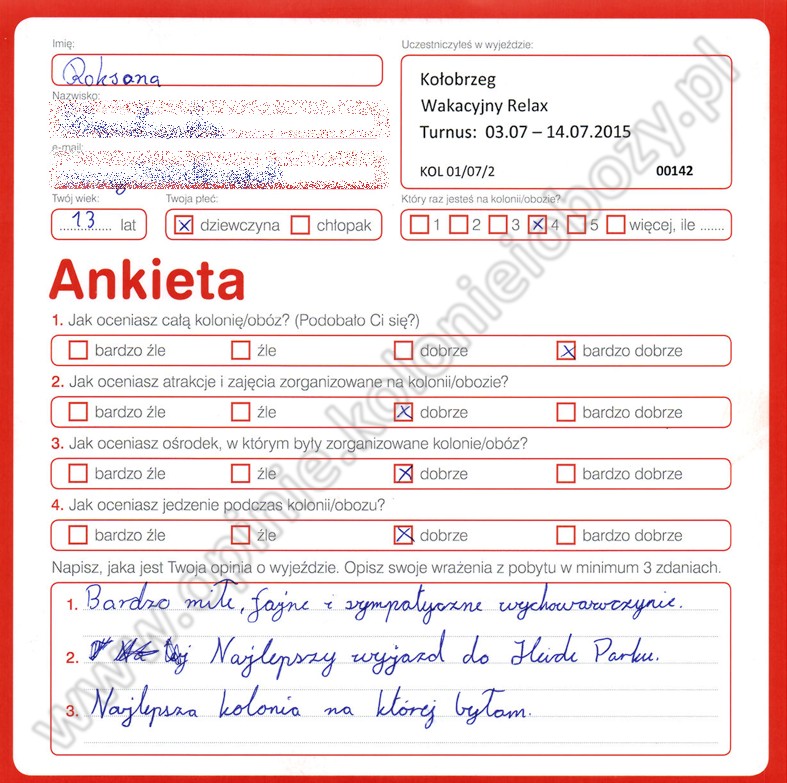 Imię:
Uczestniczyłeś w wyjeździe:
Roksana
Kołobrzeg
Wakacyjny Relax
Turnus: 03.07 – 14.07.2015
KOL 01/07/2 00142
Nazwisko:
e-mail:
Twój wiek: Twoja płeć: Który raz jesteś na kolonii/obozie?
13 lat dziewczyna chłopak 1 2 3 4 5 więcej, ile .......
Ankieta
1. Jak oceniasz całą kolonię/obóz? (Podobało Ci się?)
bardzo źle źle dobrze bardzo dobrze
2. Jak oceniasz atrakcje i zajęcia zorganizowane na kolonii/obozie?
bardzo źle źle dobrze bardzo dobrze
3. Jak oceniasz ośrodek, w którym były zorganizowane kolonie/obóz?
bardzo źle źle dobrze bardzo dobrze
4. Jak oceniasz jedzenie podczas kolonii/obozu?
bardzo źle źle dobrze bardzo dobrze
Napisz, jaka jest Twoja opinia o wyjeździe. Opisz swoje wrażenia z pobytu w minimum 3 zdaniach.
1. Bardzo miłe, fajne i sympatyczne wychowawczynie.
2. Najlepszy wyjazd do Heide Parku.
3. Najlepsza kolonia na której byłam.
www.opinie.kolonieiobozy.pl